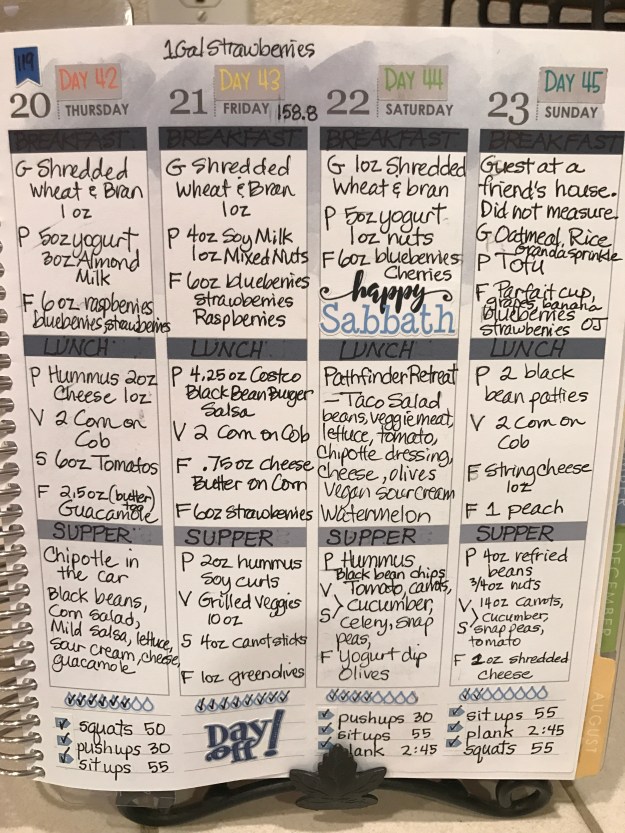 1 Gal Strawberries
119
20
DAY 42
THURSDAY
BREAKFAST
G Shredded
wheat & Bran
1 oz
P 5oz yogurt
3oz Almond
Milk
F 6 oz raspberries
blueberries, strawberries
LUNCH
P Hummus 2oz
Cheese 1oz
V 2 Corn on
Cob
S 6oz Tomatos
F 2,5oz (butter)
Guacamole
SUPPER
Chipotle in
the car
Black beans,
Corn Salad,
Mild salsa, lettuce,
sour cream, cheese,
guacamole
squats 50
pushups 30
sit ups 55
21
DAY 43
FRIDAY
158.8
BREAKFAST
G Shredded
wheat & Bran
1oz
P 4oz Soy Milk
1oz Mixed Nuts
F 6oz blueberries
strawberries
Raspberries
LUNCH
P 4.25 oz Costco
Black Bean Burger
Salsa
V 2 Corn on Cob
F .75 oz cheese
Butter on Corn
F 6oz strawberries
SUPPER
P 2oz hummus
Soy curls
V Grilled Veggies
10 oz
S 4oz carrotsticks
F 1oz green olives
Day
off!
22
DAY 44
SATURDAY
BREAKFAST
G 1oz Shredded
wheat & bran
P 5oz yogurt
1oz nuts
F 6oz blueberries
Cherries
happy
Sabbath
LUNCH
Pathfinder Retreat
— Taco Salad
beans, veggiemeat,
lettuce, tomato,
Chipotle dressing,
cheese, olives
Vegan sourcream
Watermelon
SUPPER
P Hummus
Black bean chips
V Tomato, carrots,
cucumber,
S celery, snap
peas,
F Yogurt dip
Olives
pushups 30
sit ups 55
plank 2:45
23
DAY 45
SUNDAY
BREAKFAST
Guest at a
friend's house.
Did not measure.
G Oatmeal, Rice
Granda sprinkle
P Tofu
F Parfait cup,
grapes, banana
blueberries
strawberries OJ
LUNCH
P 2 black
bean patties
V 2 Corn on
Cob
F string cheese
1oz
F 1 peach
SUPPER
P 4oz refried
beans
3/4oz nuts
V 14oz carrots,
cucumber,
S snap peas,
tomato
F 1oz shredded
cheese
sit ups 55
plank 2:45
squats 55
DECEMBER
AUGUST